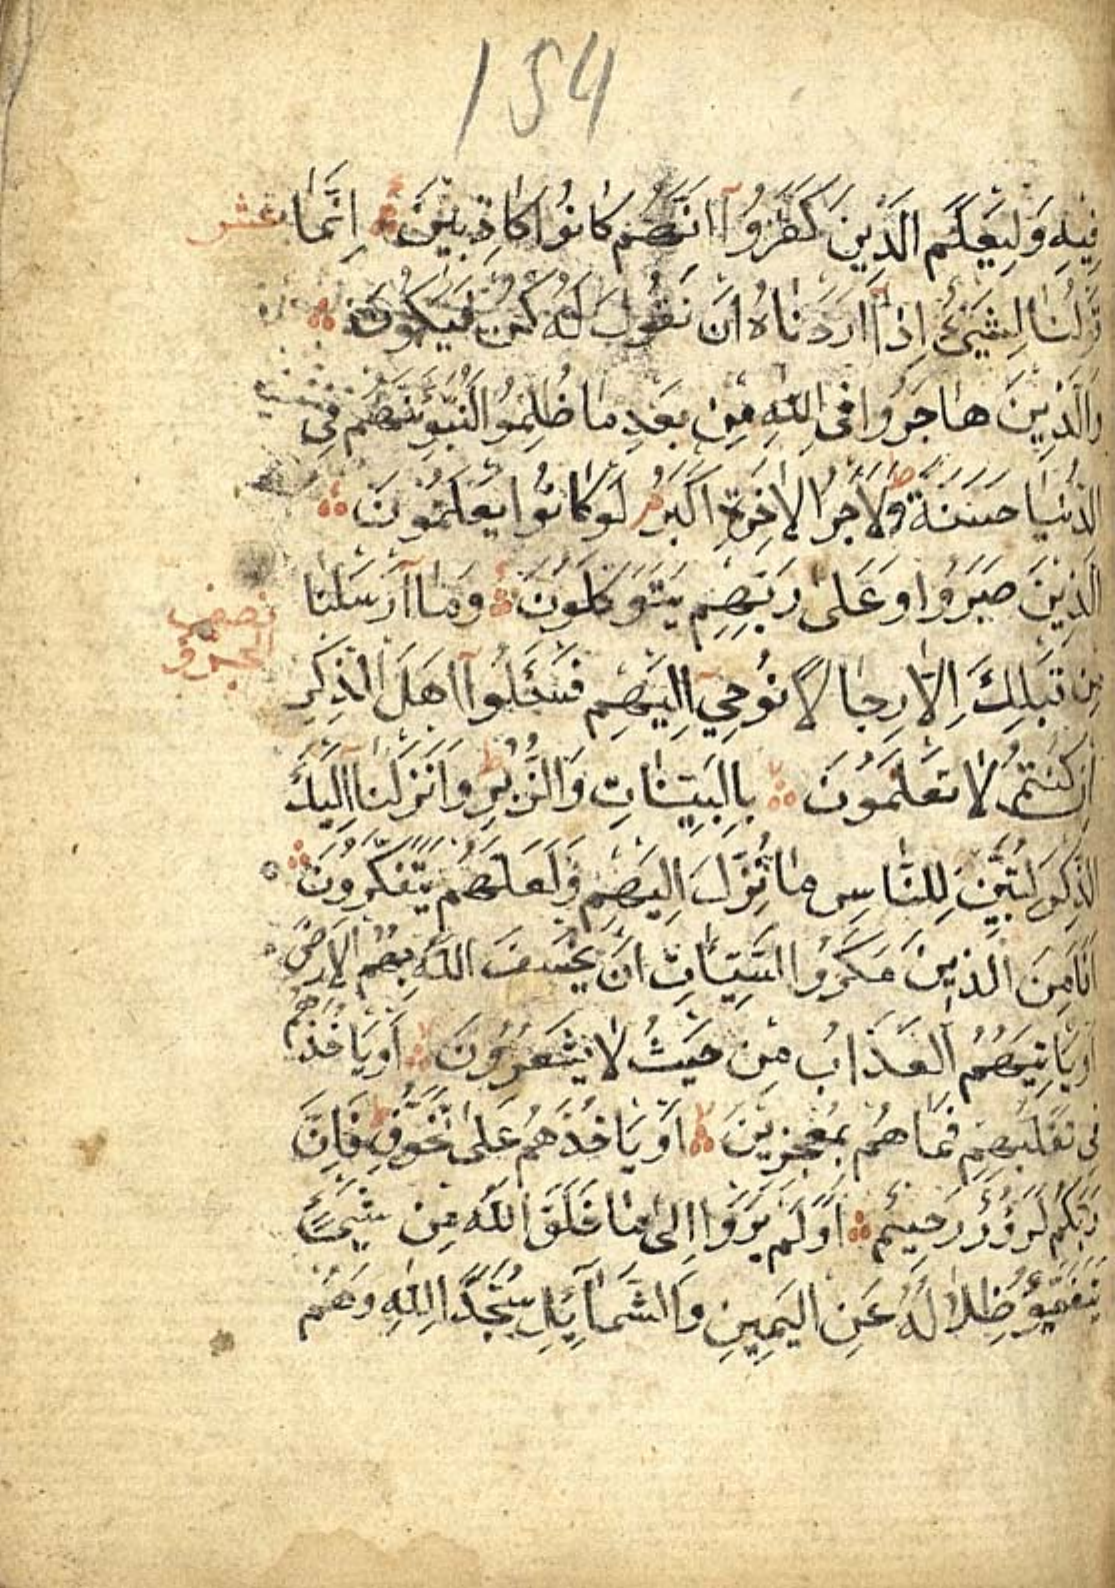 154
فِيهِ وَلِيَعْلَمَ الَّذِينَ كَفَرُوٓا اَنَّهُمْ كَانُوا كَاذِبِينَ اِنَّمَا عشر
قَوْلُنَا لِشَيْئٍ اِذَٓا اَرَدْنَاهُ اَنْ نَقُولَ لَهُ كُنْ فَيَكُونُ
وَالَّذِينَ هَاجَرُوا فِى اللّٰهِ مِنْ بَعْدِ مَا ظُلِمُوا لَنُبَوِّئَنَّهُمْ فِى
الدُّنْيَا حَسَنَةً ط وَلَاَجْرُ الْاٰخِرَةِ اَكْبَرُ م لَوْ كَانُوا يَعْلَمُونَ
الَّذِينَ صَبَرُوا وَعَلٰى رَبِّهِمْ يَتَوَكَّلُونَ وَمَٓا اَرْسَلْنَا
نصف الحزب
مِنْ قَبْلِكَ اِلَّا رِجَالًا نُوحِٓي اِلَيْهِمْ فَسْـَٔلُوٓا اَهْلَ الذِّكْرِ
اِنْ كُنْتُمْ لَا تَعْلَمُونَ لا بِالْبَيِّنَاتِ وَالزُّبُرِ ط وَاَنْزَلْنَٓا اِلَيْكَ
الذِّكْرَ لِتُبَيِّنَ لِلنَّاسِ مَا نُزِّلَ اِلَيْهِمْ وَلَعَلَّهُمْ يَتَفَكَّرُونَ
اَفَاَمِنَ الَّذِينَ مَكَرُوا السَّيِّـَٔاتِ اَنْ يَخْسِفَ اللّٰهُ بِهِمُ الْاَرْضَ
اَوْ يَاْتِيَهُمُ الْعَذَابُ مِنْ حَيْثُ لَا يَشْعُرُونَ لا اَوْ يَاْخُذَهُمْ
فِى تَقَلُّبِهِمْ فَمَا هُمْ بِمُعْجِزِينَ لا اَوْ يَاْخُذَهُمْ عَلٰى تَخَوُّفٍ ط فَاِنَّ
رَبَّكُمْ لَرَؤُفٌ رَحِيمٌ اَوَلَمْ يَرَوْا اِلٰى مَا خَلَقَ اللّٰهُ مِنْ شَيْءٍ
يَتَفَيَّؤُ ظِلَالُهُ عَنِ الْيَمِينِ وَالشَّمَٓائِلِ سُجَّدًا لِلّٰهِ وَهُمْ